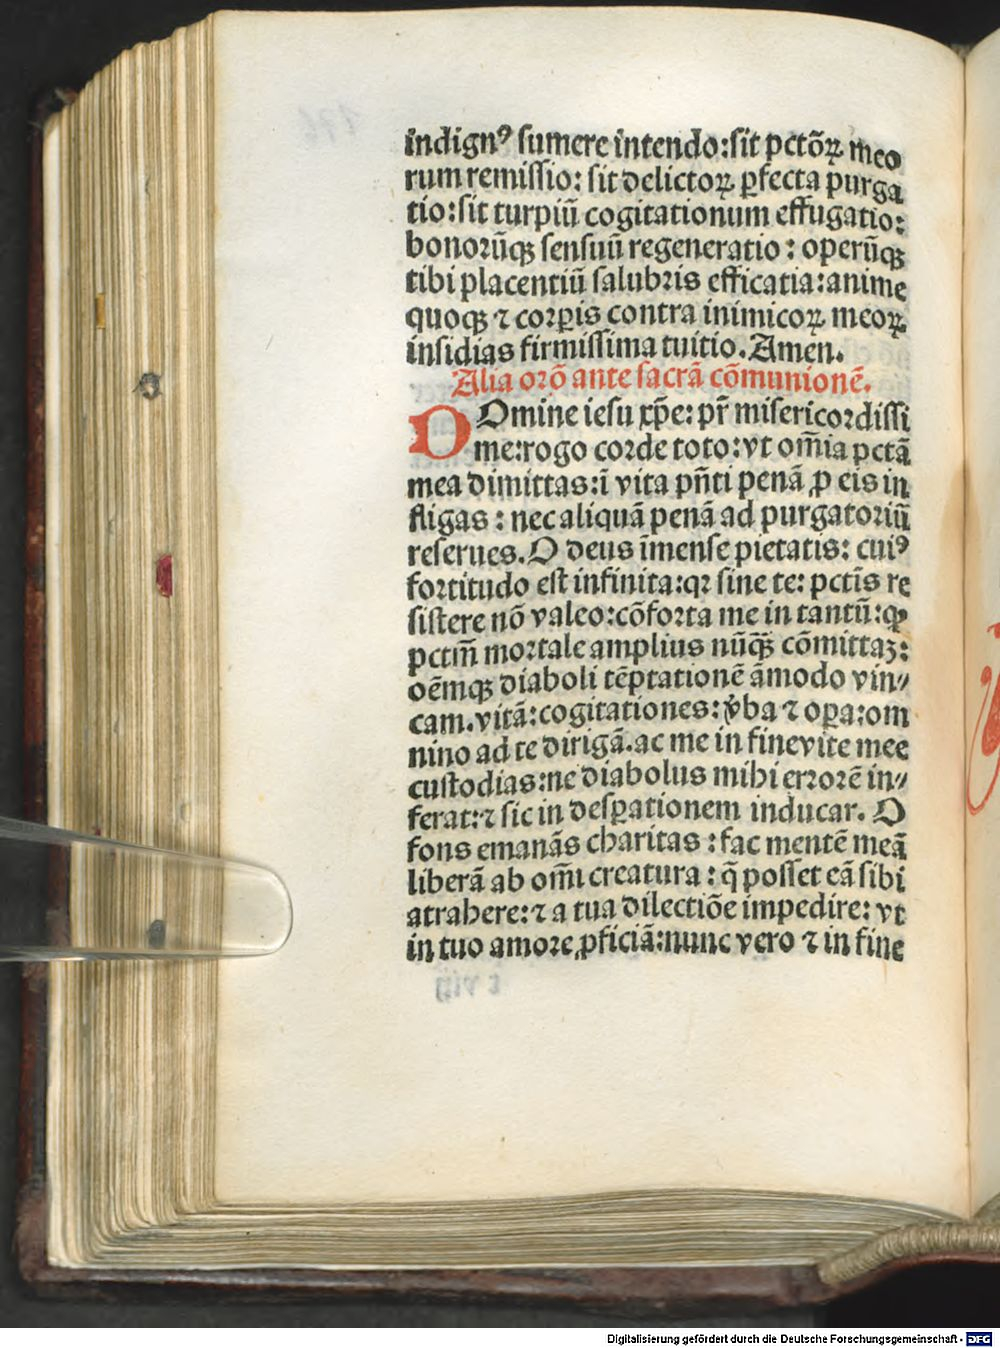 indignꝰ sumere intendo:sit pctõꝝ meo
rum remissio: sit delictoꝝ ꝑfecta purga
tio:sit turpiũ cogitationum effugatio:
bonorũqꝫ sensuũ regeneratio: operũqꝫ
tibi placentiũ salubris efficatia:anime
quoqꝫ ⁊ corꝑis contra inimicoꝝ meoꝝ
insidias firmissima tuitio. Amen.
Alia orõ ante sacrã cõmunionẽ.
DOmine iesu xp̃e: pr̃ misericordissi
me:rogo corde toto:vt om̃ia pctã
mea dimittas:ĩ vita pñti penã ꝓ eis in
fligas: nec aliquã penã ad purgatoriũ
reserues. O deus ĩmense pietatis: cuiꝰ
fortitudo est infinita:qꝛ sine te: pctĩs re
sistere nõ valeo:cõforta me in tantũ:ꝙ
pctm̃ mortale amplius nũqꝫ̃ cõmittaꝫ:
oẽmqꝫ diaboli tẽptationẽ ãmodo vin⸗
cam.vitã:cogitationes:v̾ba ⁊ oꝑa:om
nino ad te dirigã.ac me in fine vite mee
custodias:ne diabolus mihi errorẽ in⸗
ferat:⁊ sic in desꝑationem inducar. O
fons emanãs charitas: fac mentẽ meã
liberã ab om̃i creatura: q̃ posset eã sibi
atrahere:⁊ a tua dilectiõe impedire: vt
in tuo amore ꝓficiã:nunc vero ⁊ in fine
Digitalisierung gefördert durch die Deutsche Forschungsgemeinschaft - DFG